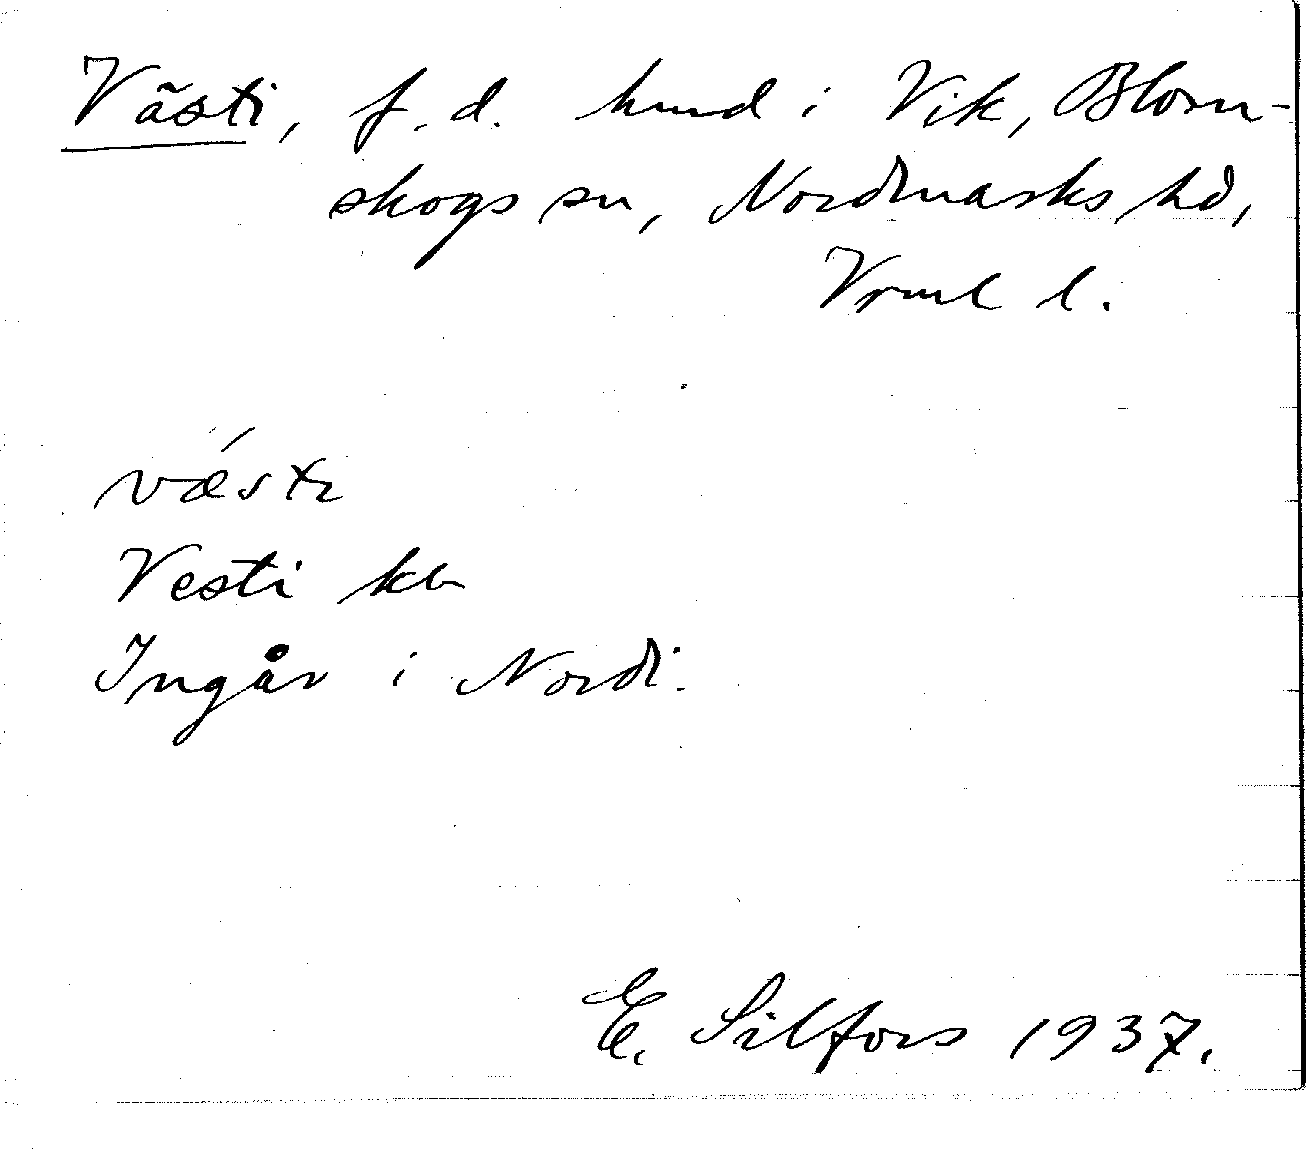 Västi, f.d. hmd i Vik, Blom-
skogs sn, Nordmarks hd,
Vrml l.
væ´stɪ
Vesti kb
Ingår i Nordi.
E. Silfors 1937.